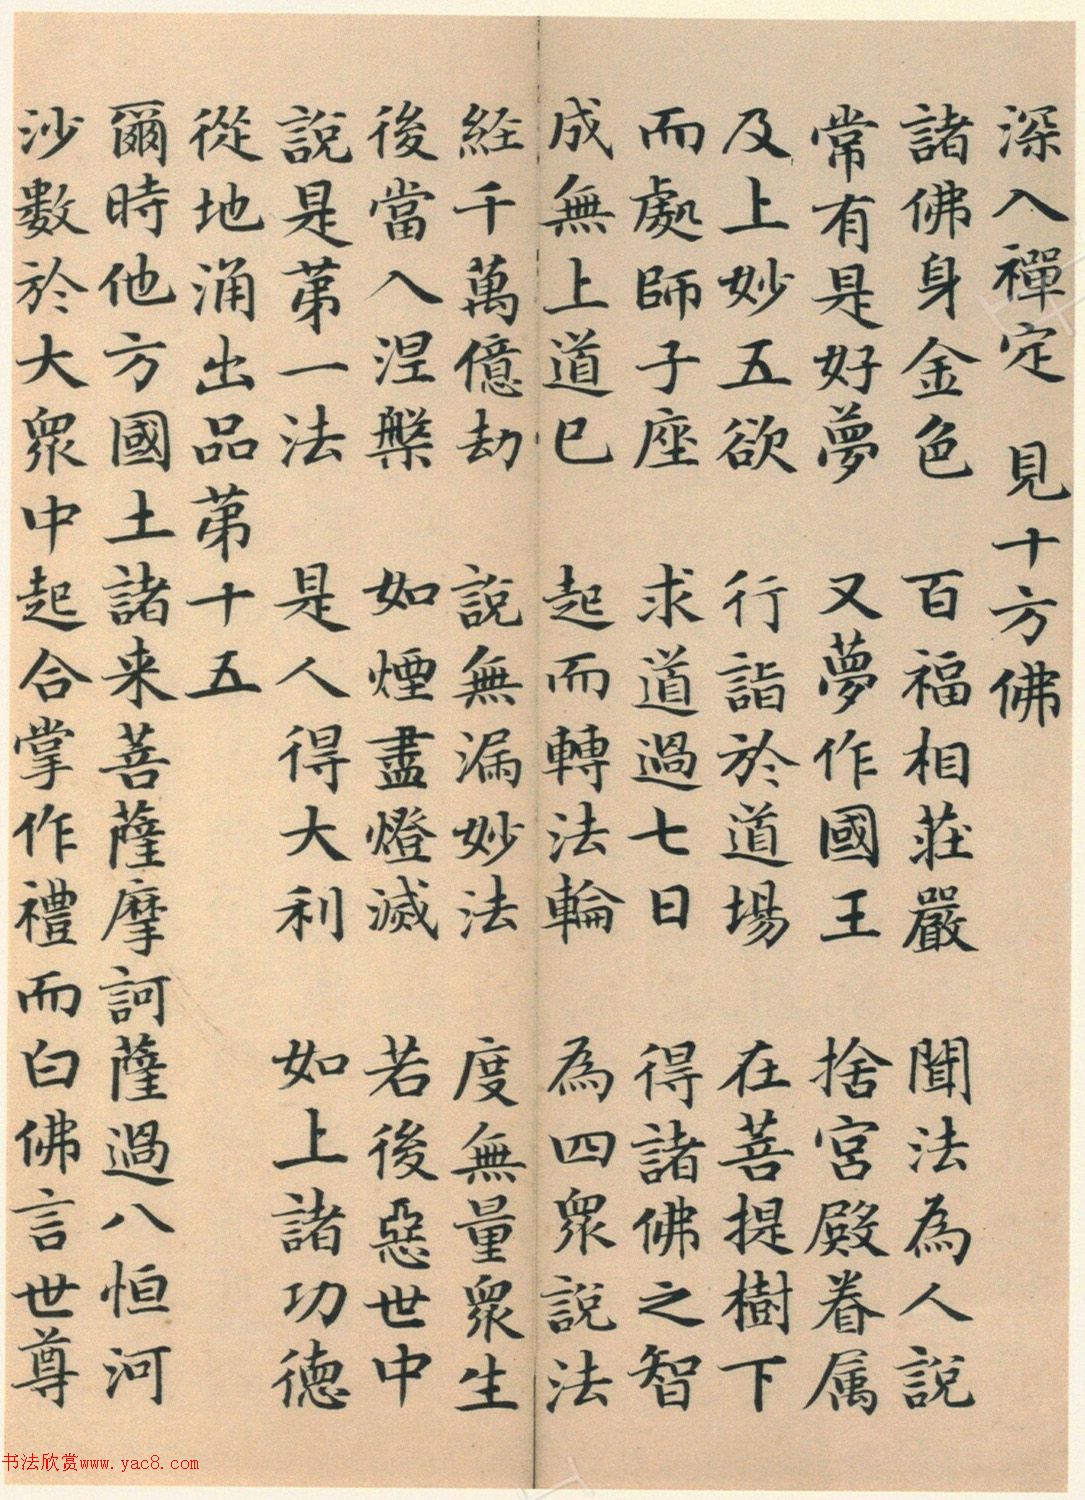 深入禪定　見十方佛
諸佛身金色　百福相莊嚴　聞法為人說
常有是好夢　又夢作國王　捨宮殿眷属
及上妙五欲　行詣於道場　在菩提樹下
而處師子座　求道過七日　得諸佛之智
成無上道已　起而轉法輪　為四眾說法
経千萬億劫　說無漏妙法　度無量眾生
後當入涅槃　如煙盡燈滅　若後惡世中
說是苐一法　是人得大利　如上諸功德
從地涌出品苐十五
爾時他方國土諸来菩薩摩訶薩過八恒河
沙數於大眾中起合掌作禮而白佛言世尊
书法欣赏www.yac8.com